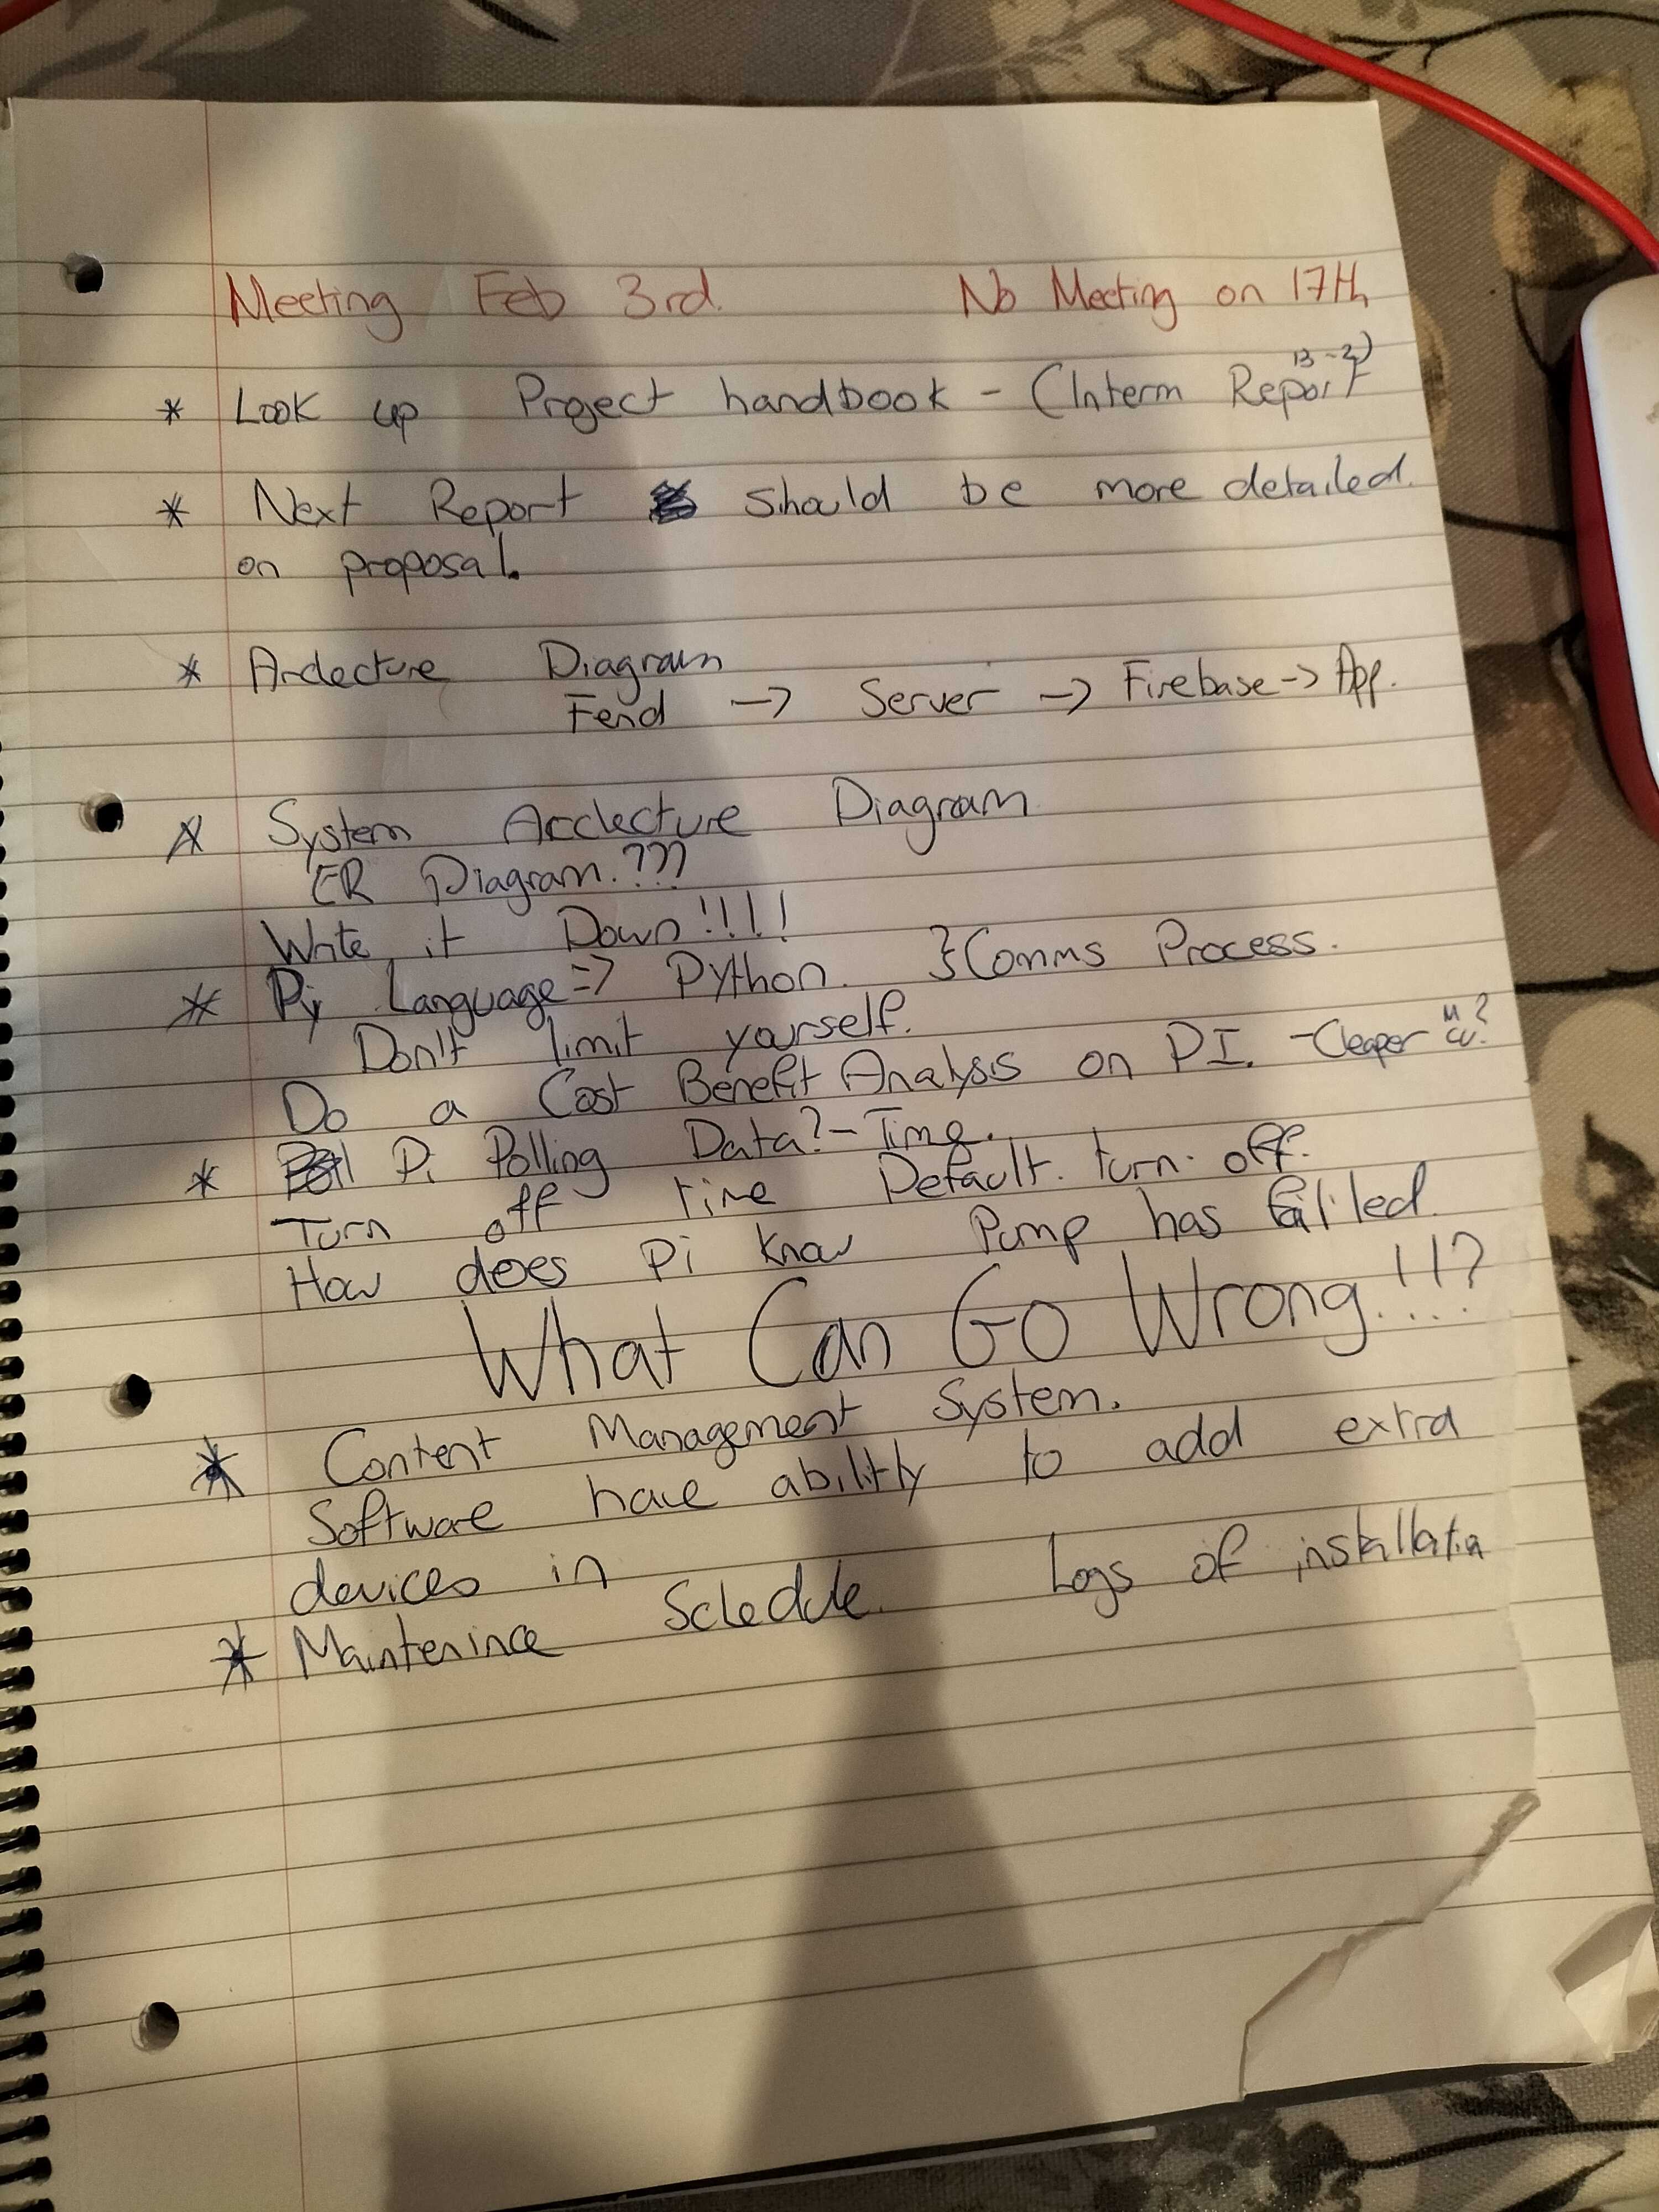 Meeting Feb 3rd. No Meeting on 17th
* Look up Project handbook - (Interm Report 13-2)
* Next Report should be more detailed.
on proposal.
* Ardecture Diagram
Fend -> Server -> Firebase -> App.
* System Arclecture Diagram
ER Diagram.???
Write it Down!!!!
* Pi Language => Python. }Comms Process.
Don't limit yourself.
Do a Cost Benefit Analysis on PI. -Cleaper
* Pi Polling Data?-Time.
Turn off time Default. turn off.
How does Pi know Pump has failled
What Can Go Wrong.!!!?
* Content Management System.
Software have abilitly to add extra
devices in
* Maintenince Scledule. Logs of installatin